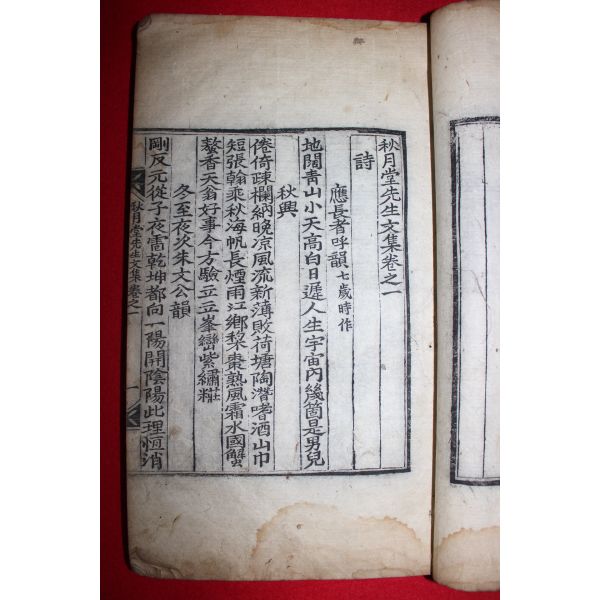 秋月堂先生文集卷之一
詩
應長者呼韻七歲時作
地闊青山小天高白日遲人生宇宙內幾箇是男兒
秋興
倦倚疎欄納晚凉風流新薄敗荷塘陶潛嗜酒山巾
短張翰乘秋海帆長煙雨江鄉梨棗熟風霜水國蟹
螯香天翁好事今方驗立立峯巒紫繡粧
冬至夜次朱文公韻
剛反元從子夜雷乾坤都向一陽開陰陽此理恒消
秋月堂先生文集 卷之一 一